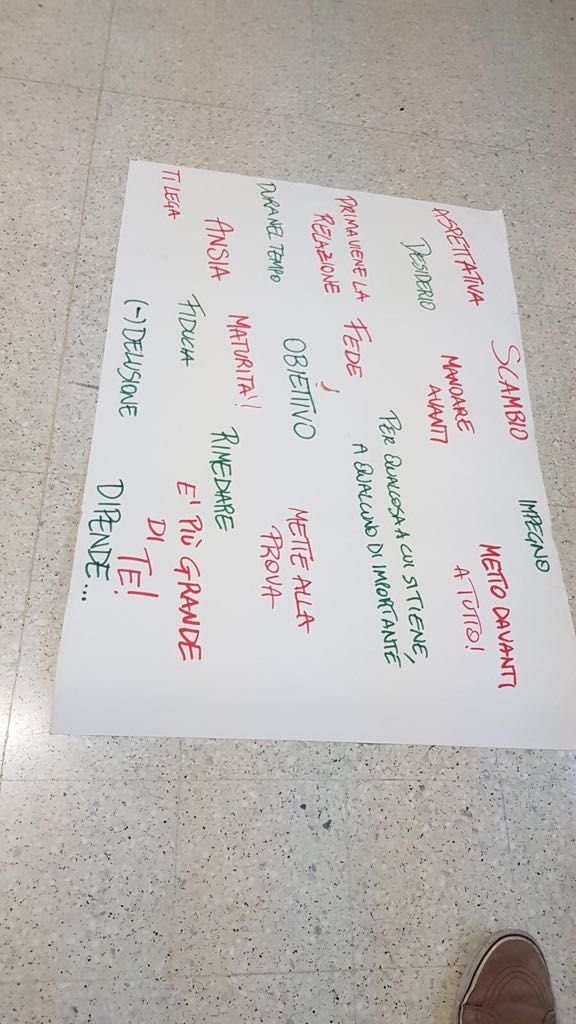 IMPEGNO
SCAMBIO
METTO DAVANTI
A TUTTO!
ASPETTATIVA
MANDARE
AVANTI
DESIDERIO
PER QUALCOSA A CUI SI TIENE,
A QUALCUNO DI IMPORTANTE
PRIMA VIENE LA
RELAZIONE
FEDE!
DURA NEL TEMPO
OBIETTIVO
METTE ALLA
PROVA
ANSIA
MATURITA'!
RIMEDIARE
TI LEGA
FIDUCIA
E' PIÙ GRANDE
DI TE!
(-) DELUSIONE
DIPENDE...